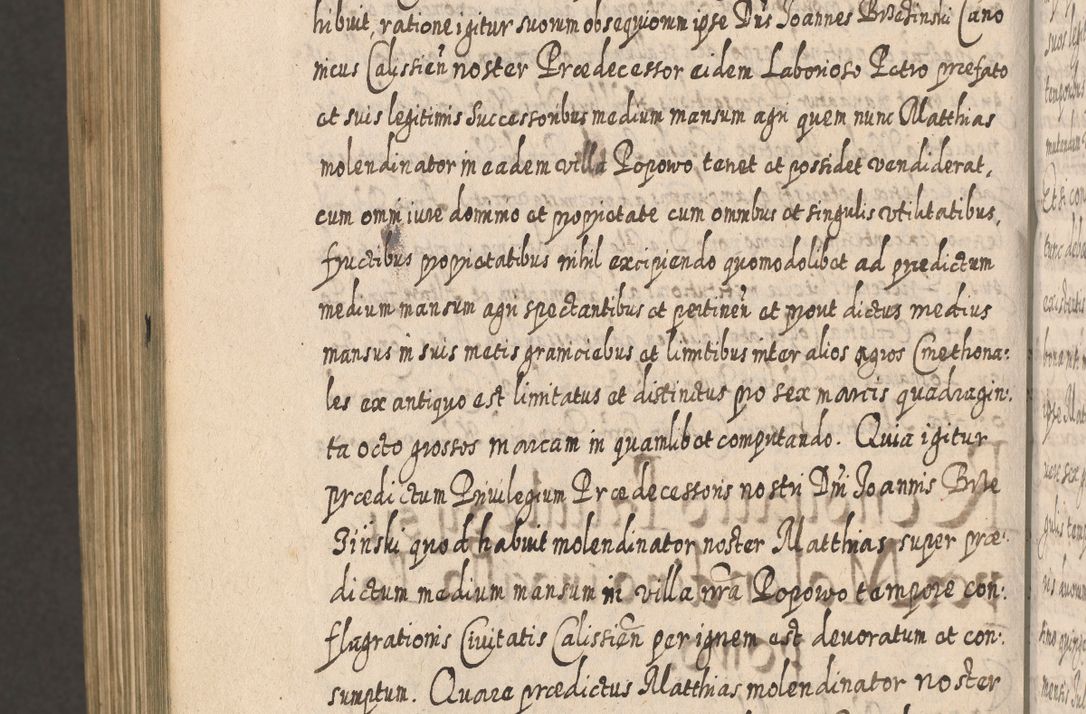 hibuit, ratione igitur suorum obsequiorum ipse Dns Joannes Brzezinski Cano
nicus Calissien̄ noster Prædecessor eidem Laborioso Petro præfato
et suis legitimis Successoribus medium mansum agri quem nunc Matthias
molendinator in eadem villa Popowo tenet et possidet vendiderat,
cum omni iure dominio et proprietate cum omnibus et singulis utilitatibus,
fructibus proprietatibus nihil excipiendo quomodolibet ad prædictum
medium mansum agri spectantibus et pertinen̄ et prout dictus medius
mansus in suis metis graniciebus et limitibus inter alios agros Cmethona:
les ex antiquo est limitatus et distinctus pro sex marcis quadragin:
ta octo grossos marcam in quamlibet computando. Quia igitur
prædictum Priuilegium Prædecessoris nostri Dn̄i Joannis Brze
zinski quod habuit molendinator noster Matthias super præ:
dictum medium mansum in villa nr̄a Popowo tempore con:
flagrationis Ciuitatis Calissien̄ per ignem est deuoratum et con:
sumptum. Quare prædictus Matthias molendinator noster